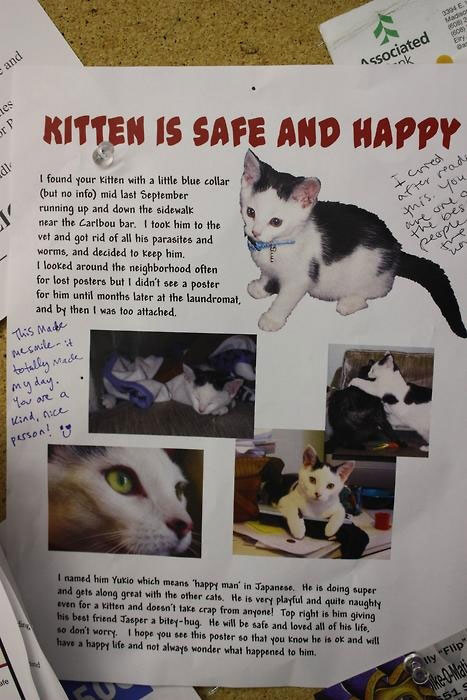 3394 E.
Madison
(608)
(608)
Associated
KITTEN IS SAFE AND HAPPY
I found your kitten with a little blue collar
(but no info) mid last September
running up and down the sidewalk
near the Caribou bar. I took him to the
vet and got rid of all his parasites and
worms, and decided to keep him.
I looked around the neighborhood often
for lost posters but I didn't see a poster
for him until months later at the laundromat,
and by then I was too attached.
I cried
after reading
this. You
are one of
the best
people
This made
me smile - it
totally made
my day.
You are a
kind, nice
person!
I named him Yukio which means 'happy man' in Japanese. He is doing super
and gets along great with the other cats. He is very playful and quite naughty
even for a kitten and doesn't take crap from anyone! Top right is him giving
his best friend Jasper a bitey-hug. He will be safe and loved all of his life,
so don't worry. I hope you see this poster so that you know he is ok and will
have a happy life and not always wonder what happened to him.
"Flip"